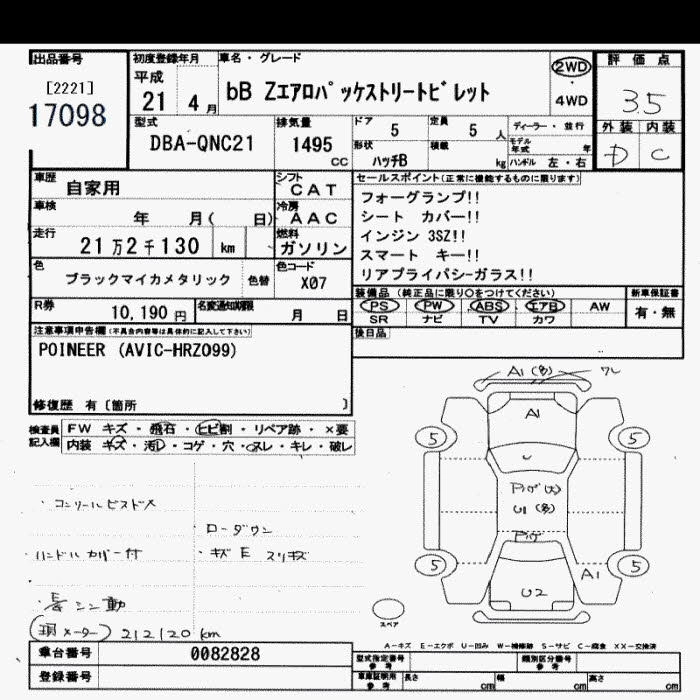 出品番号
[2221]
17098
初度登録年月
平成
21 4 月
車名・グレード
bB Zエアロパッケストリートビレット
2WD
・
4WD
評価点
3.5
外装 内装
D C
型式
DBA-QNC21
排気量
1495
CC
ドア
5
定員
5 人
ディーラー・並行
形状
ハッチB
積載
kg
モデル年式 年
ハンドル 左・右
車歴
自家用
車検
年 月( 日)
走行
21万2千130 km
色
ブラックマイカメタリック
色替
シフト
CAT
冷房
AAC
燃料
ガソリン
色コード
X07
セールスポイント(正常に機能するものに限ります)
フォーグランプ!!
シート カバー!!
インジン 3SZ!!
スマート キー!!
リアプライバシーガラス!!
R券
10,190 円
名変通知期限
月 日
装備品 (純正品に限り○をつけてください)
PS PW ABS エアB AW
SR ナビ TV カワ
新車保証書
有・無
後日品
注意事項申告欄(不具合内容等は具体的に記入して下さい)
POINEER (AVIC-HRZ099)
修復歴 有 〔箇所 〕
検査員
記入欄
FW キズ・飛石・ヒビ割・リペア跡・×要
内装 キズ・汚レ・コゲ・穴・ヌレ・キレ・破レ
・コンソールビスドメ
・ローダウン
・ハンドルカバー付
・キズ E スリキズ
(現メーター) 212120 km
A1 (多)
A1
5 5
U
U1 (多)
5 5
A1
U2
スペア
A-キズ E-エクボ U-凹み W-補修跡 S-サビ C-腐食 XX-交換済
車台番号
0082828
登録番号
型式指定番号
参考
類別区分番号
参考
車庫証明用
参考
長さ cm
幅 cm
高さ cm